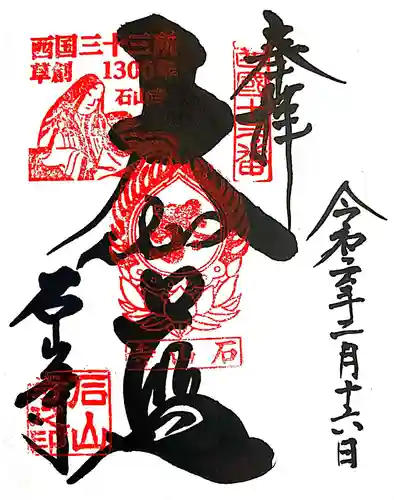 奉拝
西國十三番
令和二年二月十六日
西国三十三所
草創 1300年
石山寺
大伽藍
石山寺
石山